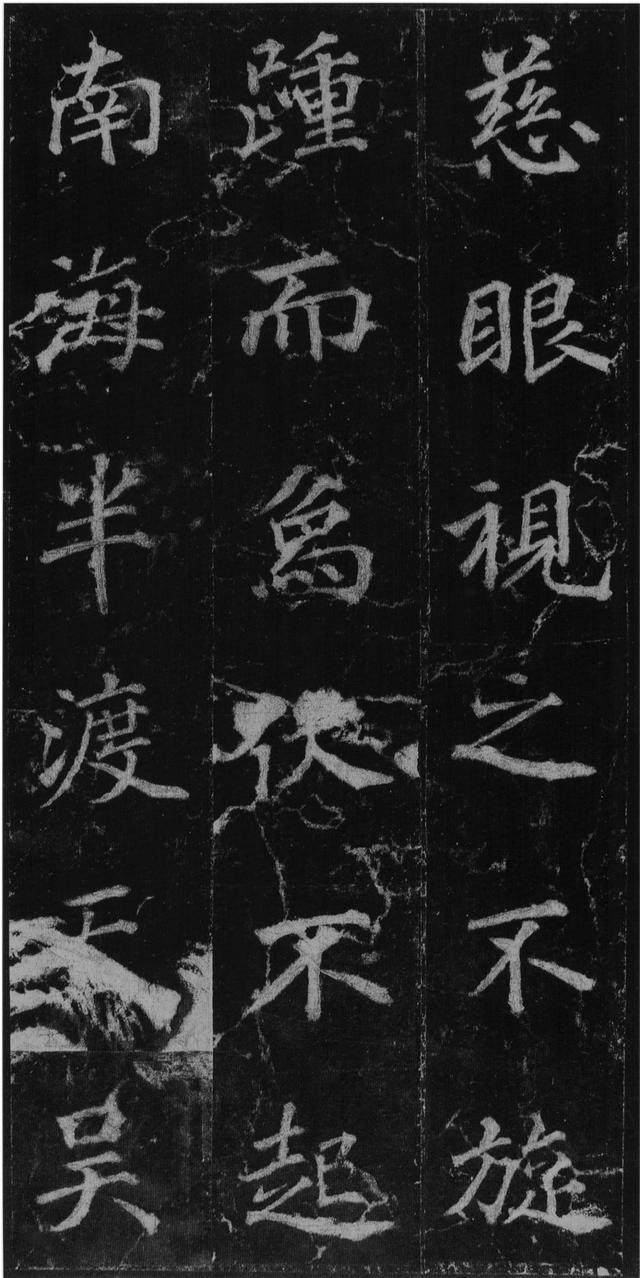 慈眼視之不旋
踵而爲伏不起
南海半渡吴